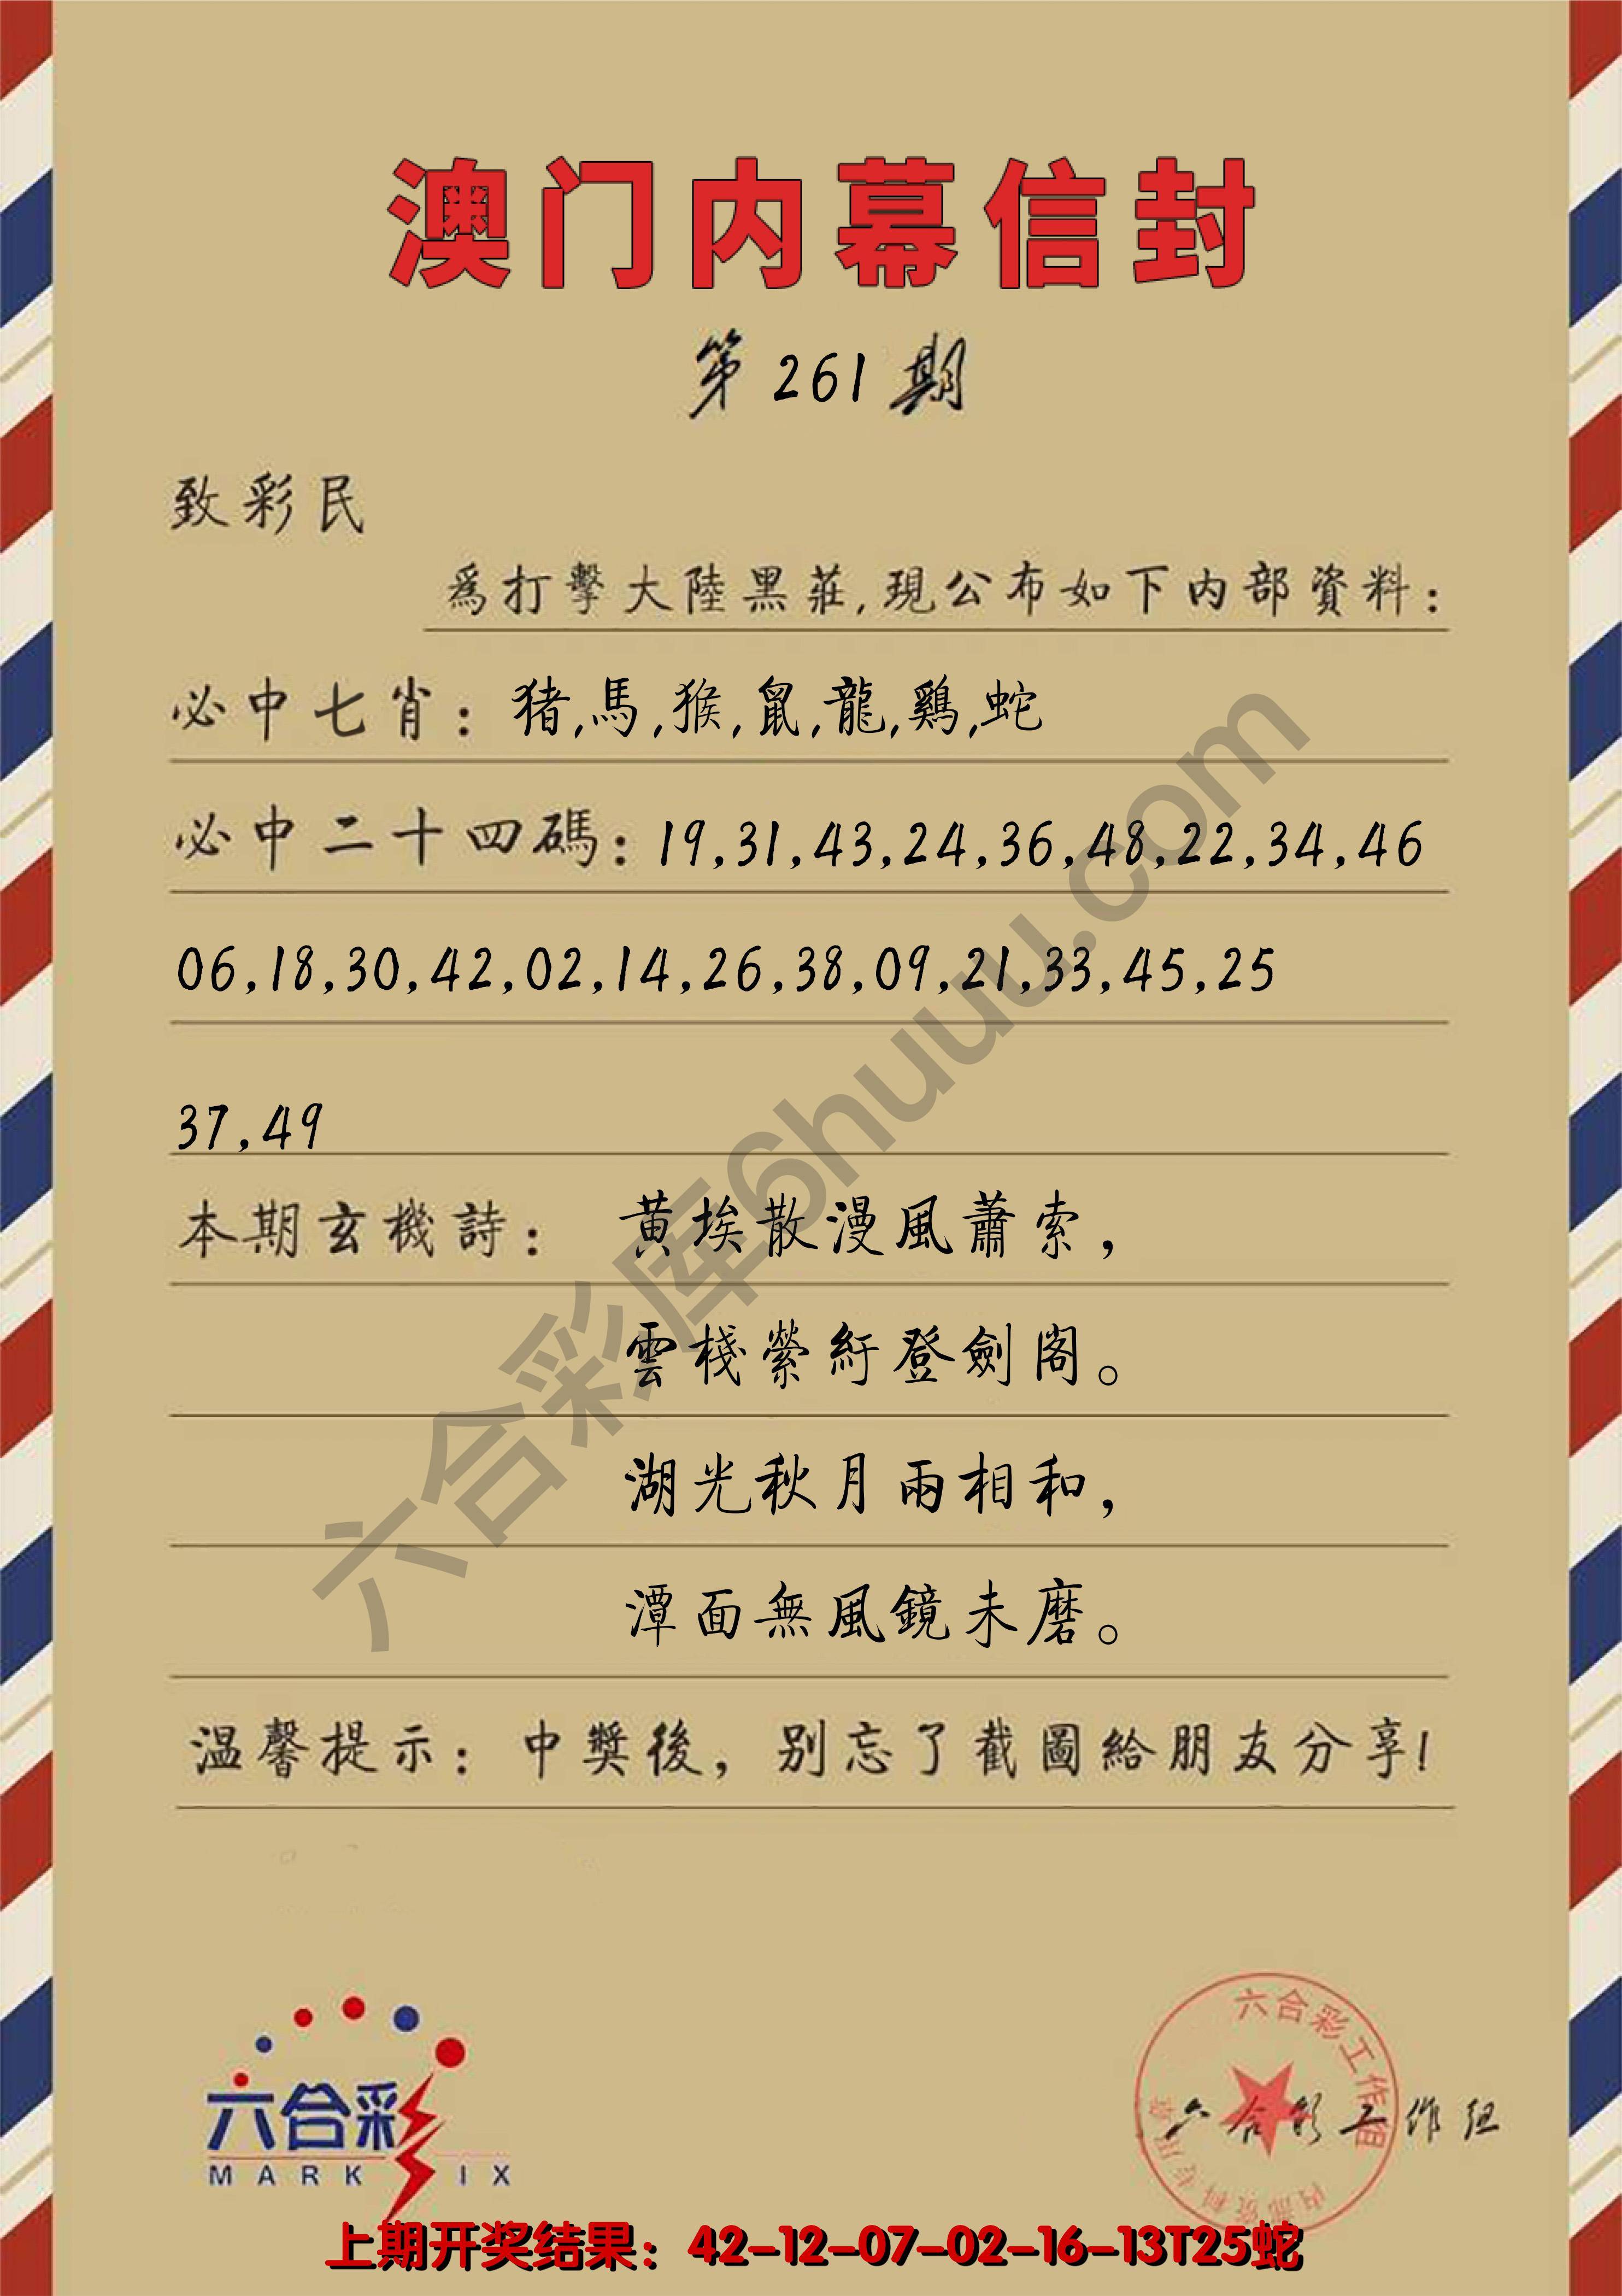 澳门内幕信封
第261期
致彩民
爲打擊大陸黑莊,現公布如下内部資料:
必中七肖: 猪,馬,猴,鼠,龍,鷄,蛇
必中二十四碼: 19,31,43,24,36,48,22,34,46
06,18,30,42,02,14,26,38,09,21,33,45,25
37,49
本期玄機詩: 黄埃散漫風蕭索,
雲棧縈紆登劍閣。
湖光秋月兩相和,
潭面無風鏡未磨。
温馨提示: 中獎後, 别忘了截圖給朋友分享!
六合彩库6huuu.com
六合彩
MARK IX
六合彩工作组
六合彩工作组
上期开奖结果: 42-12-07-02-16-13T25蛇